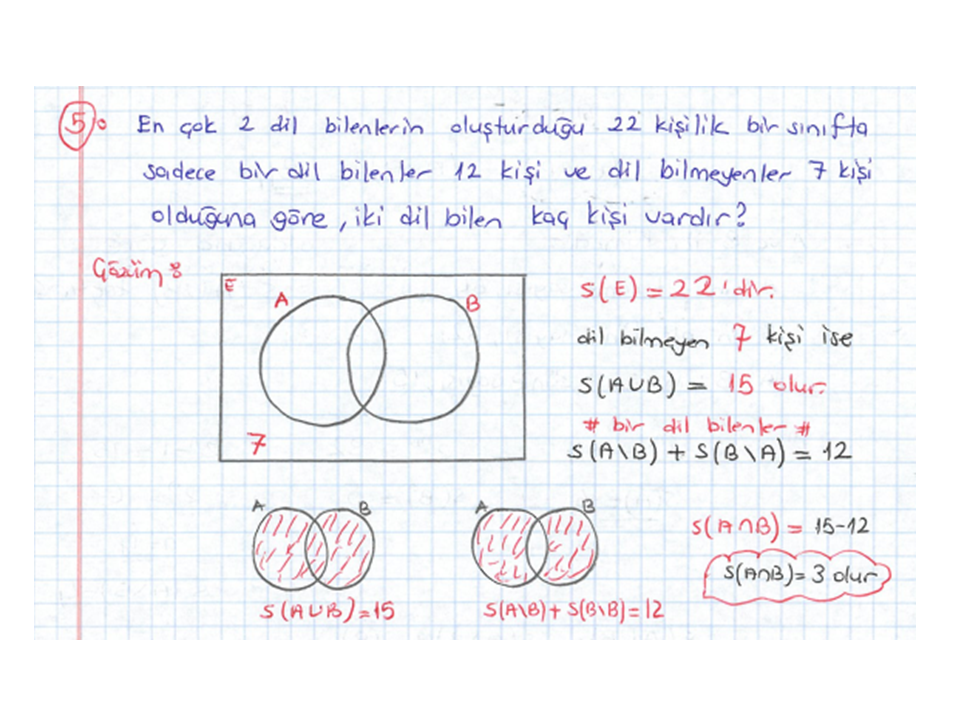 5. En çok 2 dil bilenlerin oluşturduğu 22 kişilik bir sınıfta
sadece bir dil bilenler 12 kişi ve dil bilmeyenler 7 kişi
olduğuna göre, iki dil bilen kaç kişi vardır?
Çözüm :
E
A
B
7
S(E) = 22'dir.
dil bilmeyen 7 kişi ise
S(A∪B) = 15 olur.
# bir dil bilenler #
S(A\B) + S(B\A) = 12
A B
S(A∪B) = 15
A B
S(A\B) + S(B\B) = 12
S(A∩B) = 15-12
S(A∩B) = 3 olur